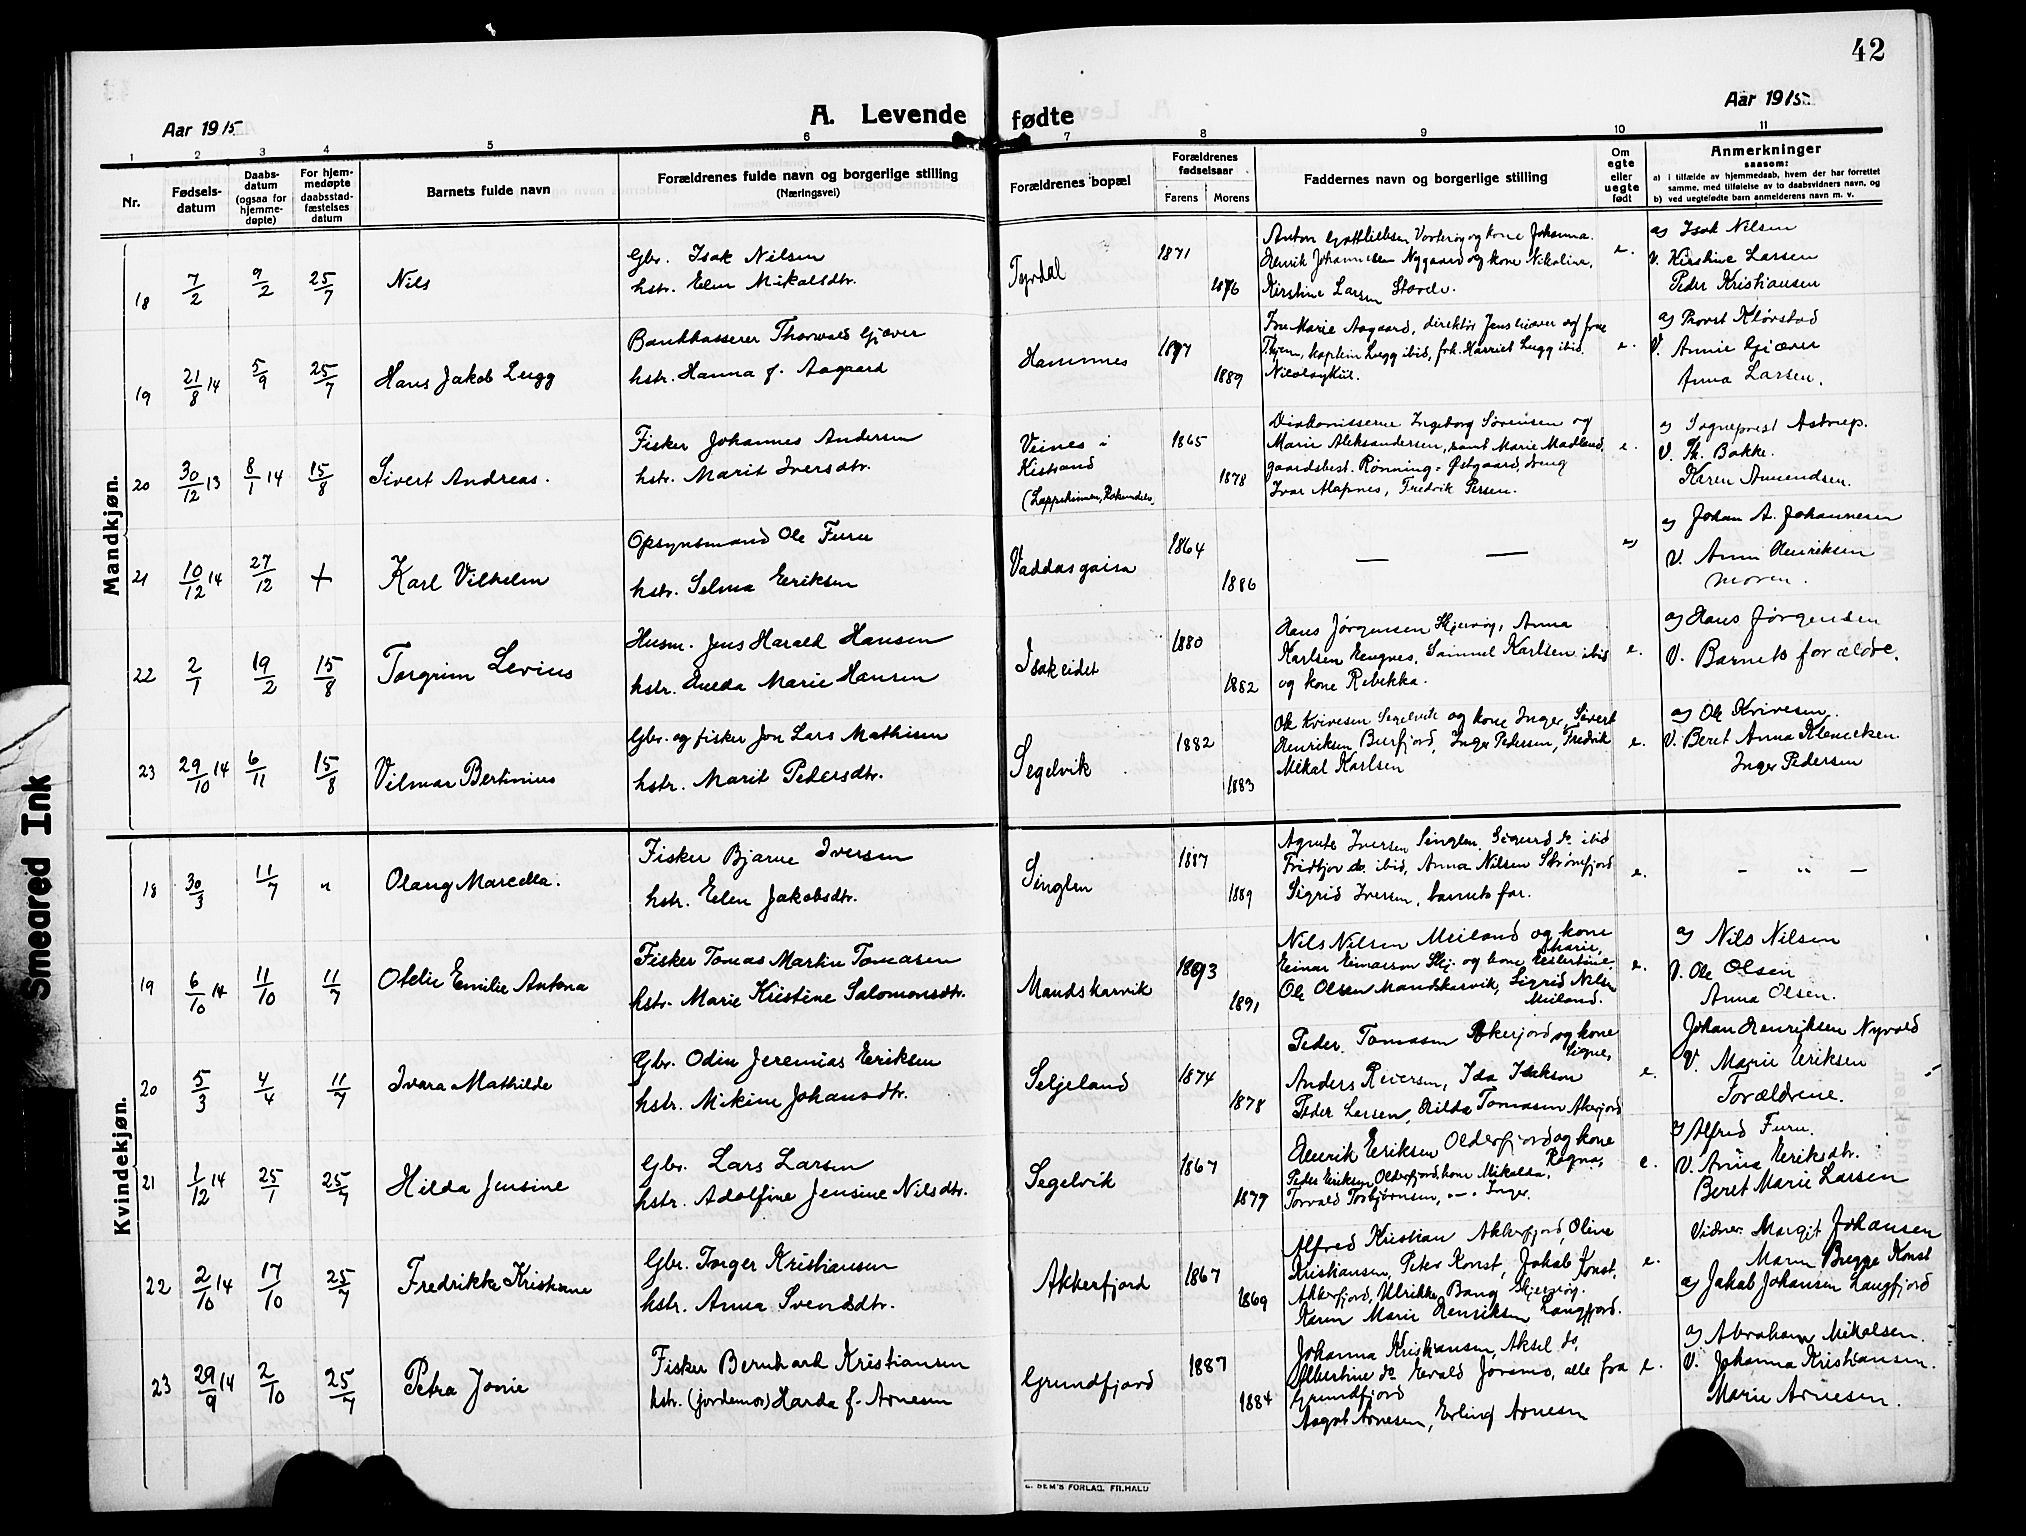 42
Aar 1915
A. Levende fødte
Aar 1915
1 2 3 4 5 6 7 8 9 10 11
Nr.
Fødsels-
datum
Daabs-
datum
(ogsaa for
hjemme-
døpte)
For hjem-
medøpte
daabsstad-
fæstelses
datum
Barnets fulde navn
Forældrenes fulde navn og borgerlige stilling
(Næringsvei)
Forældrenes bopæl
Forældrenes
fødselsaar
Farens Morens
Faddernes navn og borgerlige stilling
Om
egte
eller
uegte
født
Anmerkninger
saasom:
a) i tilfælde av hjemmedaab, hvem der har forrettet
samme, med tilføielse av to daabsvidners navn, og
b) ved uegtefødte barn anmelderens navn m. v.
Mandkjøn.
18 7/2 9/2 25/7 Nils
Gbr. Isak Nilsen
hstr. Elen Mikalsdtr.
1871
1876
Anton Gotthilfsen Vorterøy og kone Johanna.
Henrik Johannesen Nygaard og kone Nikoline,
Kirstine Larsen Storslv.
e.
a) Isak Nilsen
V. Kirstine Larsen
Peder Kristiansen
19 21/8 14 5/9 25/7 Hans Jakob Lugg
Bankkasserer Thorvald Gjæver
hstr. Hanna f. Aagaard
Hamnnes
1877
1889
Fru Marie Aagaard, direktør Jens Gjæver og frue
Thyra, kaptein Lugg ibid, frk. Harriet Lugg ibid.
e.
a) Provst Kløvstad
V. Annie Gjæver
Anna Larsen.
20 30/12 13 8/1 14 15/8 Sivert Andreas.
Fisker Johannes Andersen
hstr. Marit Iversdtr.
Veines i
Kistrand
1865
1878
Diakonisserne Ingeborg Sørensen og
Marie Aleksandersen, samt Marie Madland,
gaardsbest. Rønning - Østgaard, dreng
Ivar Alapnes, Fredrik Persen.
e.
a) Sogneprest Astrup.
V. Th. Bakke.
Karen Amundsen.
21 10/12 14 27/12 + Karl Vilhelm
Opsynsmand Ole Furu
hstr. Selma Eriksen
Vaddasgaisa
1864
1886
— —
a) Johan A. Johannesen
V. Anna Henriksen
moren.
22 2/1 19/2 15/8 Torgrim Levius
Husm. Jens Harald Hansen
hstr. Hulda Marie Hansen
Isakeidet
1880
1882
Hans Jørgensen Skjervøy, Anna
Karlsen Engnes, Samuel Karlsen ibid
og kone Rebekka.
e.
a) Hans Jørgensen
V. Barnets forældre.
23 29/10 14 6/11 15/8 Vilmar Bertinius
Gbr. og fisker Jon Lars Mathisen
hstr. Marit Pedersdtr.
Segelvik
1882
1883
Ole Kvivesen Segelvik og kone Inger, Sivert
Henriksen Burfjord, Inger Pedersen, Fredrik
Mikal Karlsen
e.
a) Ole Kvivesen.
V. Beret Anna Klemetsen.
Inger Pedersen
Kvindekjøn.
18 30/3 11/7 " Olaug Marcella.
Fisker Bjarne Iversen
hstr. Elen Jakobsdtr.
Singlen
1887
1889
Agnete Iversen Singlen, Sigurd do ibid
Fridtjov do. ibid, Anna Nilsen Strømfjord
Sigrid Iversen, barnets far.
e.
- " -
19 6/10 14 11/10 11/7 Otelie Emilie Antona
Fisker Tomas Martin Tomasen
hstr. Marie Kristine Salomonsdtr.
Mandskarvik
1893
1891
Nils Nilsen Meiland og kone
Marie,
Einar Einarson Skj. og kone
Ole Olsen Mandskarvik, Sigrid Nilsen
Meiland.
e.
a) Nils Nilsen
V. Ole Olsen
Anna Olsen.
20 5/3 4/4 11/7 Ivara Mathilde
Gbr. Odin Jeremias Eriksen
hstr. Mikine Johansdtr.
Seljeland
1874
1878
Peder. Tomasen Akerjord og kone
Signe,
Anders Reiersen, Ida Isaksen
Peder Larsen, Hilda Tomasen Akerjord
e.
Johan Henriksen Nyvold
V. Marie Eriksen
Forældrene.
21 1/12 14 25/1 25/7 Hilda Jensine
Gbr. Lars Larsen
hstr. Adolfine Jensine Nilsdtr.
Segelvik
1867
1877
Henrik Eriksen Olderfjord og kone
Ragna,
Peder Eriksen Olderfjord, kone Mikalsa,
Torvald Torbjørnsen, -"- Inger.
e.
a) Alfred Furu.
V. Anna Eriksdtr.
Beret Marie Larsen
22 2/10 14 17/10 25/7 Fredrikke Kristiane
Gbr. Torger Kristiansen
hstr. Anna Svensdtr.
Akkerfjord
1867
1869
Alfred Kristian Akkerfjord, Oline
Kristiansen, Peter Konst, Jakob Konst,
Akkerfjord, Ulrikke Bang Skjervøy.
Karen Marie Henriksen Langfjord.
e.
Vidner Margit Johansen
Maren Brygge Konst
a) Jakob Johansen Langfjord
23 29/9 14 2/10 25/7 Petra Jonie
Fisker Bernhard Kristiansen
hstr. (jordemor) Harda f. Arnesen
Grundfjord
1887
1884
Johanna Kristiansen, Aksel do,
Albertine do Evald Joramo, alle fra
Grundfjord
Aagot Arnesen, Erling Arnesen
e.
a) Abraham Mikalsen.
V. Johanna Kristiansen.
Marie Arnesen.
FORLAG. FR.HALD
Smeared Ink